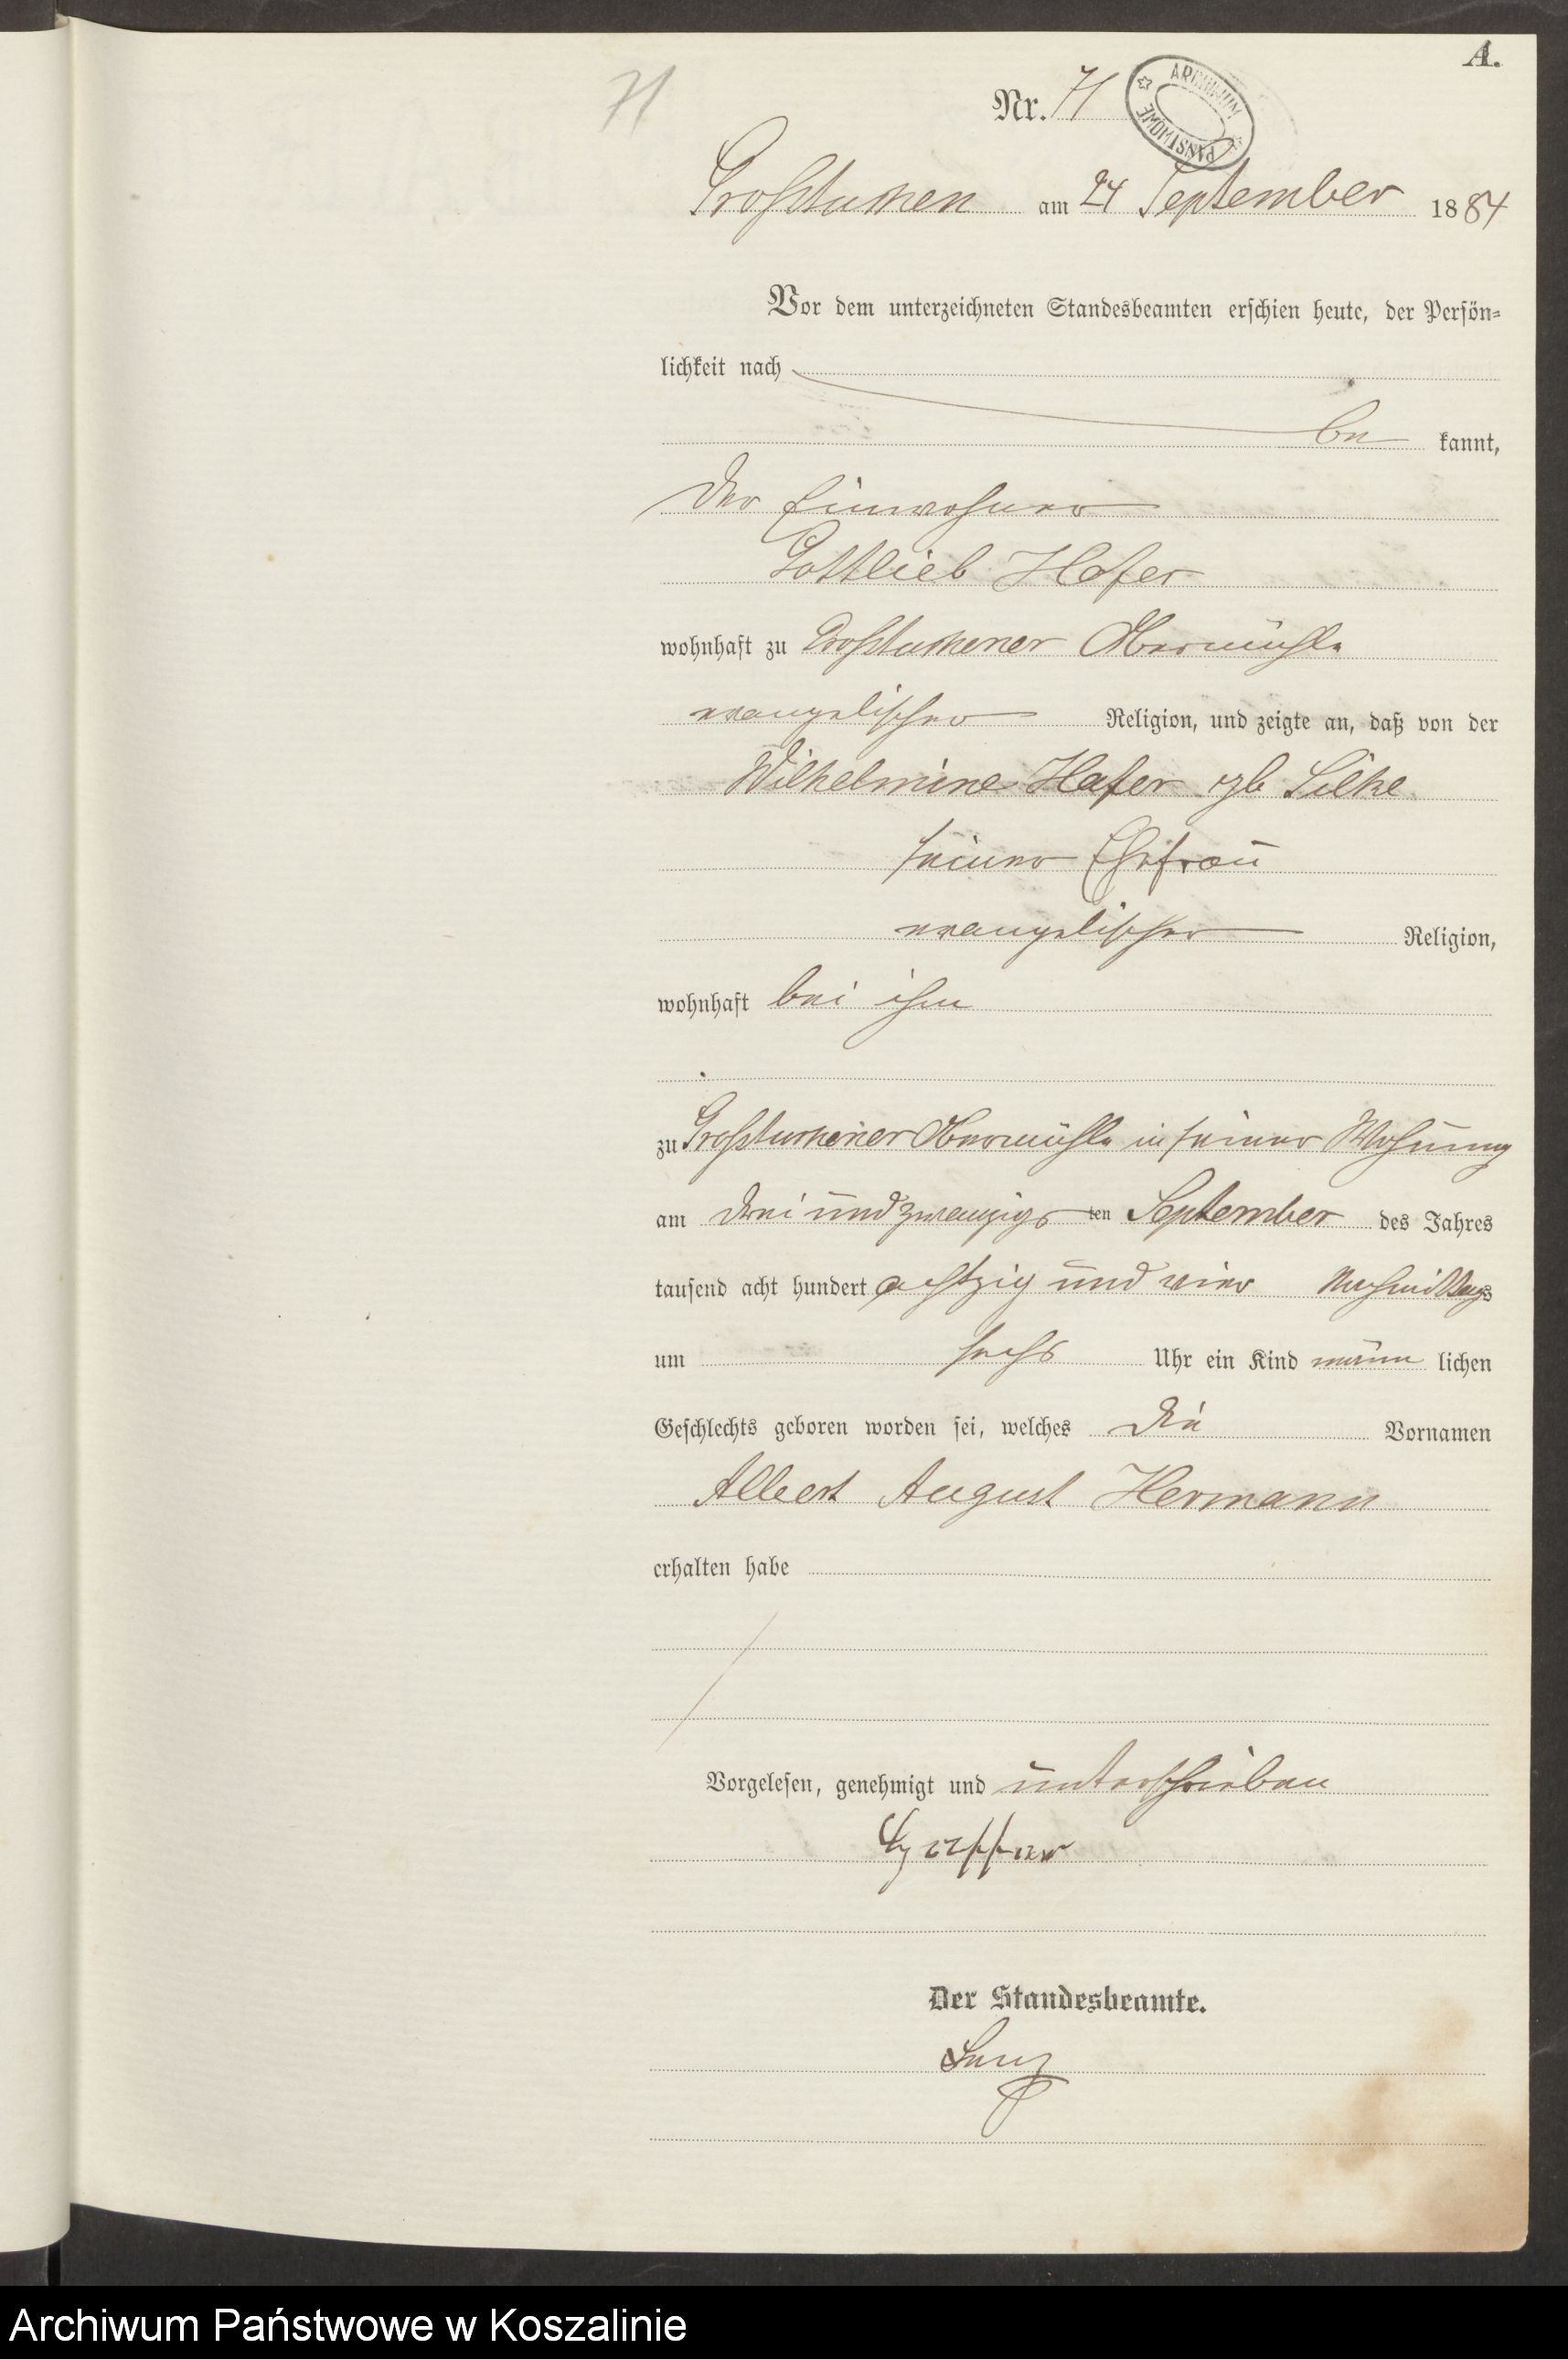 A.
71
Nr. 71
ARCHIWUM PAŃSTWOWE
Großtuchen am 24 September 1884
Vor dem unterzeichneten Standesbeamten erschien heute, der Persön=
lichkeit nach
be kannt,
der Einwohner
Gottlieb Hafer
wohnhaft zu Großtuchener Obermühle
evangelischer Religion, und zeigte an, daß von der
Wilhelmine Hafer geb Lilke
seiner Ehefrau
evangelischer Religion,
wohnhaft bei ihm
zu Großtuchener Obermühle in seiner Wohnung
am drei und zwanzigsten September des Jahres
tausend acht hundert achtzig und vier Nachmittags
um sechs Uhr ein Kind männ lichen
Geschlechts geboren worden sei, welches die Vornamen
Albert August Hermann
erhalten habe
Vorgelesen, genehmigt und unterschrieben
Der Standesbeamte.
Archiwum Państwowe w Koszalinie